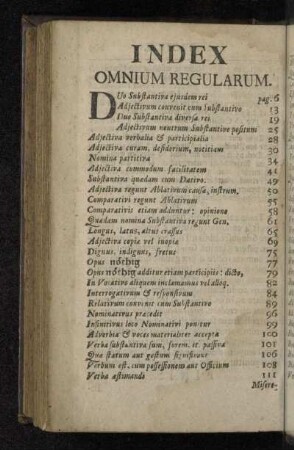 INDEX
OMNIUM REGULARUM.
DUo Substantiva ejusdem rei pag. 6
Adjectivum convenit cum substantivo 13
Duo Substantiva diversæ rei 19
Adjectivum neutrum Substantive positum 25
Adjectiva verbalia & participialia 28
Adjectiva curam, desiderium, notitiam 30
Nomina partitiva 34
Adjectiva commodum facilitatem 41
Substantiva quædam cum Dativo. 49
Adjectiva regunt Ablativum causæ, instrum. 50
Comparativi regunt Ablativum 55
Comparativis etiam adduntur: opinione 58
Quædam nomina Substantiva regunt Gen. 61
Longus, latus, altus crassus 65
Adjectiva copiæ vel inopiæ 69
Dignus, indignus, fretus 75
Opus nöthig 77
Opus nöthig additur etiam participiis: dicto, 79
In Vocativo aliquem inclamamus vel alloq. 82
Interrogativum & responsivum 84
Relativum convenit cum Substantivo 89
Nominativus præcedit 96
Infinitivus loco Nominativi ponitur 99
Adverbia & voces materialiter accepta 100
Verba substantiva sum, forem. it. passiva 101
Quæ statum aut gestum significant 106
Verbum est, cum possessionem aut Officium 108
Verba æstimandi 111
Misere-